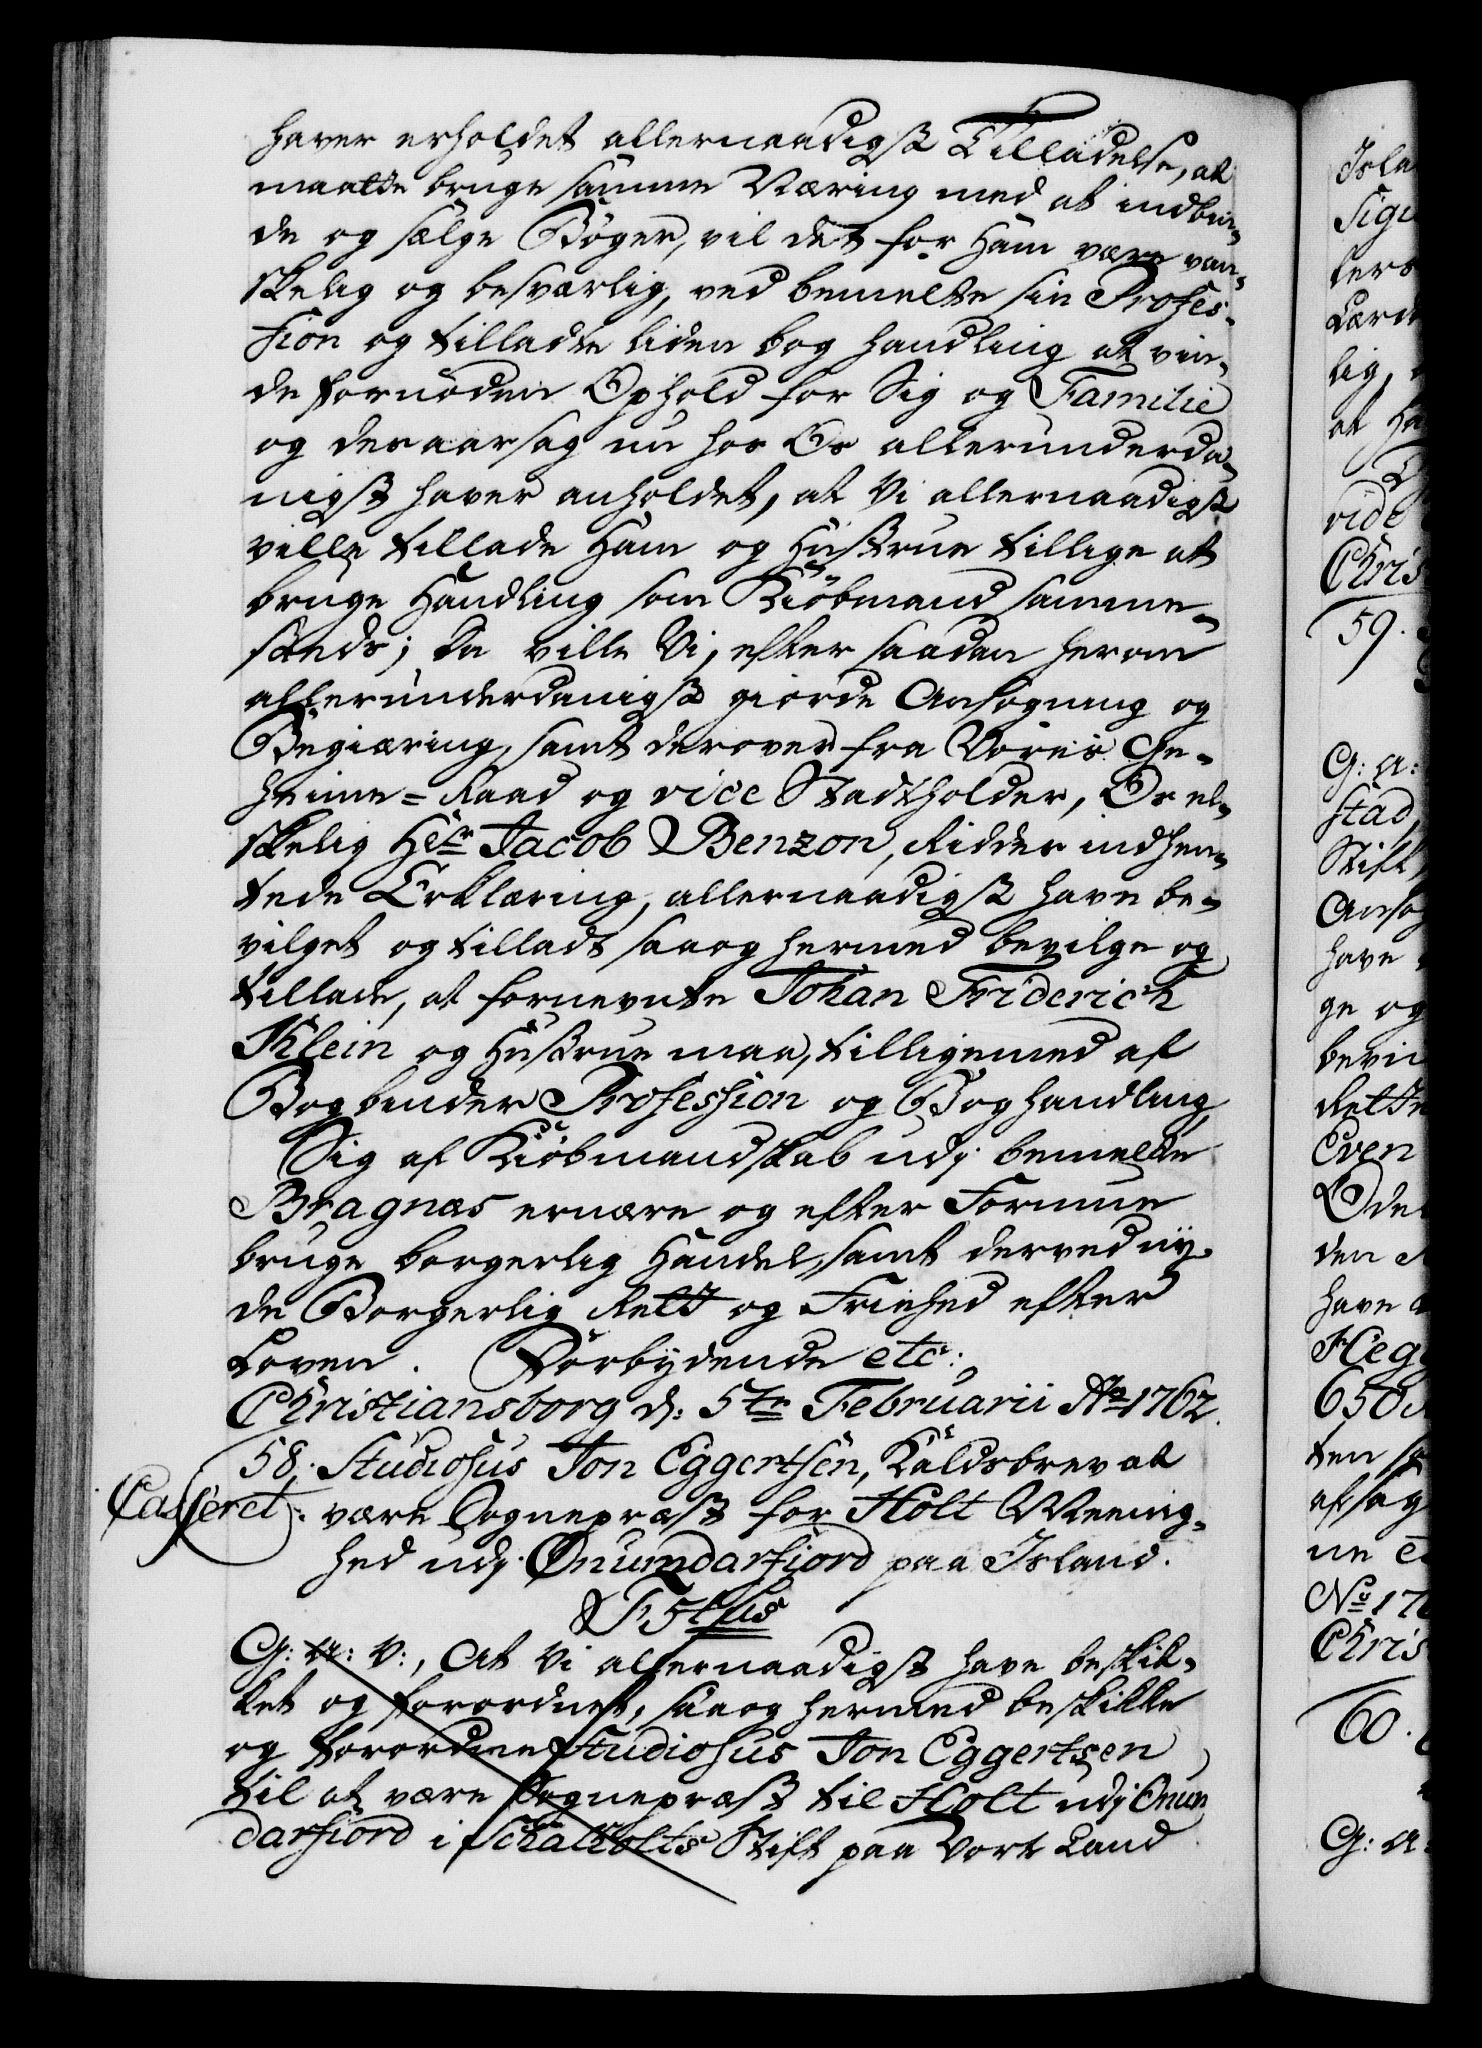 haver erholdet allernaadigst Tilladelse, at
maatte bruge samme Næring med at indbin-
de og sælge Bøger, vil det for Ham være van-
skelig og besværlig, ved bemelte sin Profes-
sion og tilladte liden bog handling at vin-
de fornøden Ophold for Sig og Familie
og desaarsag nu hos Os allerunderda-
nigst haver anholdet, at Vi allernaadigst
ville tillade Ham og Hustrue tillige at
bruge Handling som Kiøbmand samme-
steds; Da ville Vi, efter saadan herom
allerunderdanigst giorde Ansøgning og
Begiæring, samt derover fra Vores Ge-
heime-Raad og vice Stadtholder, Os el-
skelig Hr Jacob Benzon, Ridder indhen-
tede Erklæring, allernaadigst have be-
vilget og tilladt saa og hermed bevilge og
tillade, at fornevnte Johan Friderich
Klein og Hustrue maa, tilligemed af
Bogbinder Profession og Boghandling,
Sig af Kiøbmandskab udj bemelte
Bragnæs ernære og efter Formue
bruge borgerlig Handel, samt derved ny-
de Borgerlig Rett og Friehed efter
Loven. Forbydende etc:
Christiansborg d: 5te Februarii Ao 1762.
58. Studiosus Jon Eggertsen, Kaldsbrev at
Casseret: være Sognepræst for Holt Menig-
hed udj Onumdarfiord paa Island.
F5tus
G: A: V:, At Vi allernaadigst have beskik-
ket og forordnet, saa og hermed beskikke
og forordne Studiosus Jon Eggertsen
til at være Sognepræst til Holt udj Onun
darfiord i Schalholts Stift paa Vort Land